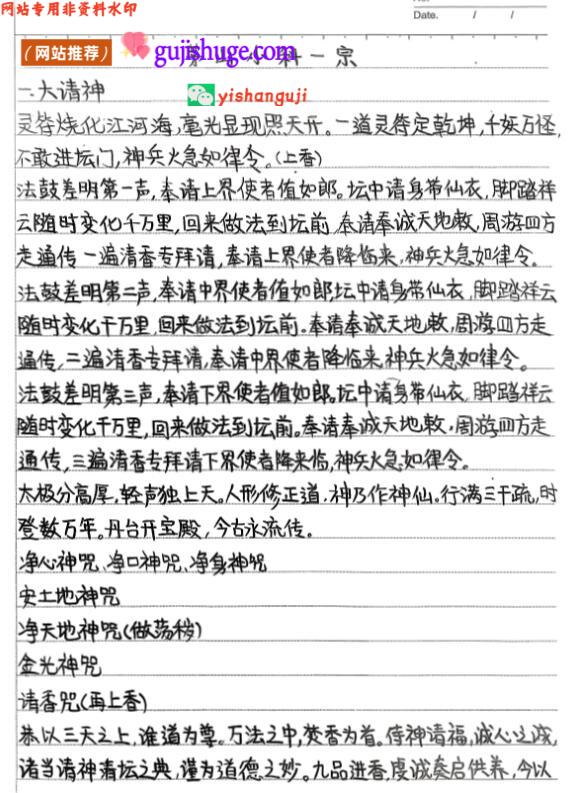 网站专用非资料水印
No.
Date. / /
(网站推荐) gujishuge.com 小科一宗
yishanguji
一.大请神
灵符烧化江河海,毫光显现照天开。一道灵符定乾坤,千妖万怪,
不敢进坛门,神兵火急如律令。(上香)
法鼓差明第一声,奉请上界使者值如郎。坛中请身带仙衣,脚踏祥
云随时变化千万里,回来做法到坛前.奉请奉诚天地敕,周游四方
走通传一遍清香专拜请,奉请上界使者降临来,神兵火急如律令。
法鼓差明第二声,奉请中界使者值如郎坛中请身带仙衣,脚踏祥云
随时变化千万里,回来做法到坛前。奉请奉诚天地敕,周游四方走
通传,二遍清香专拜请,奉请中界使者降临来,神兵火急如律令。
法鼓差明第三声,奉请下界使者值如郎。坛中请身带仙衣,脚踏祥云
随时变化千万里,回来做法到坛前。奉请奉诚天地敕.周游四方走
通传,三遍清香专拜请下界使者降来临,神兵火急如律令。
太极分高厚,轻声独上天。人形修正道,神乃作神仙。行满三千疏,时
登数万年。丹台开宝殿,今古永流传。
净心神咒、净口神咒、净身神咒
安土地神咒
净天地神咒(做荡秽)
金光神咒
请香咒(再上香)
恭以三天之上,谁道为尊。万法之中,焚香为首。侍神请福,诚心之诚,
诸当请神清坛之典,谨为道德之妙。九品进香,虔诚奏启供养,今以